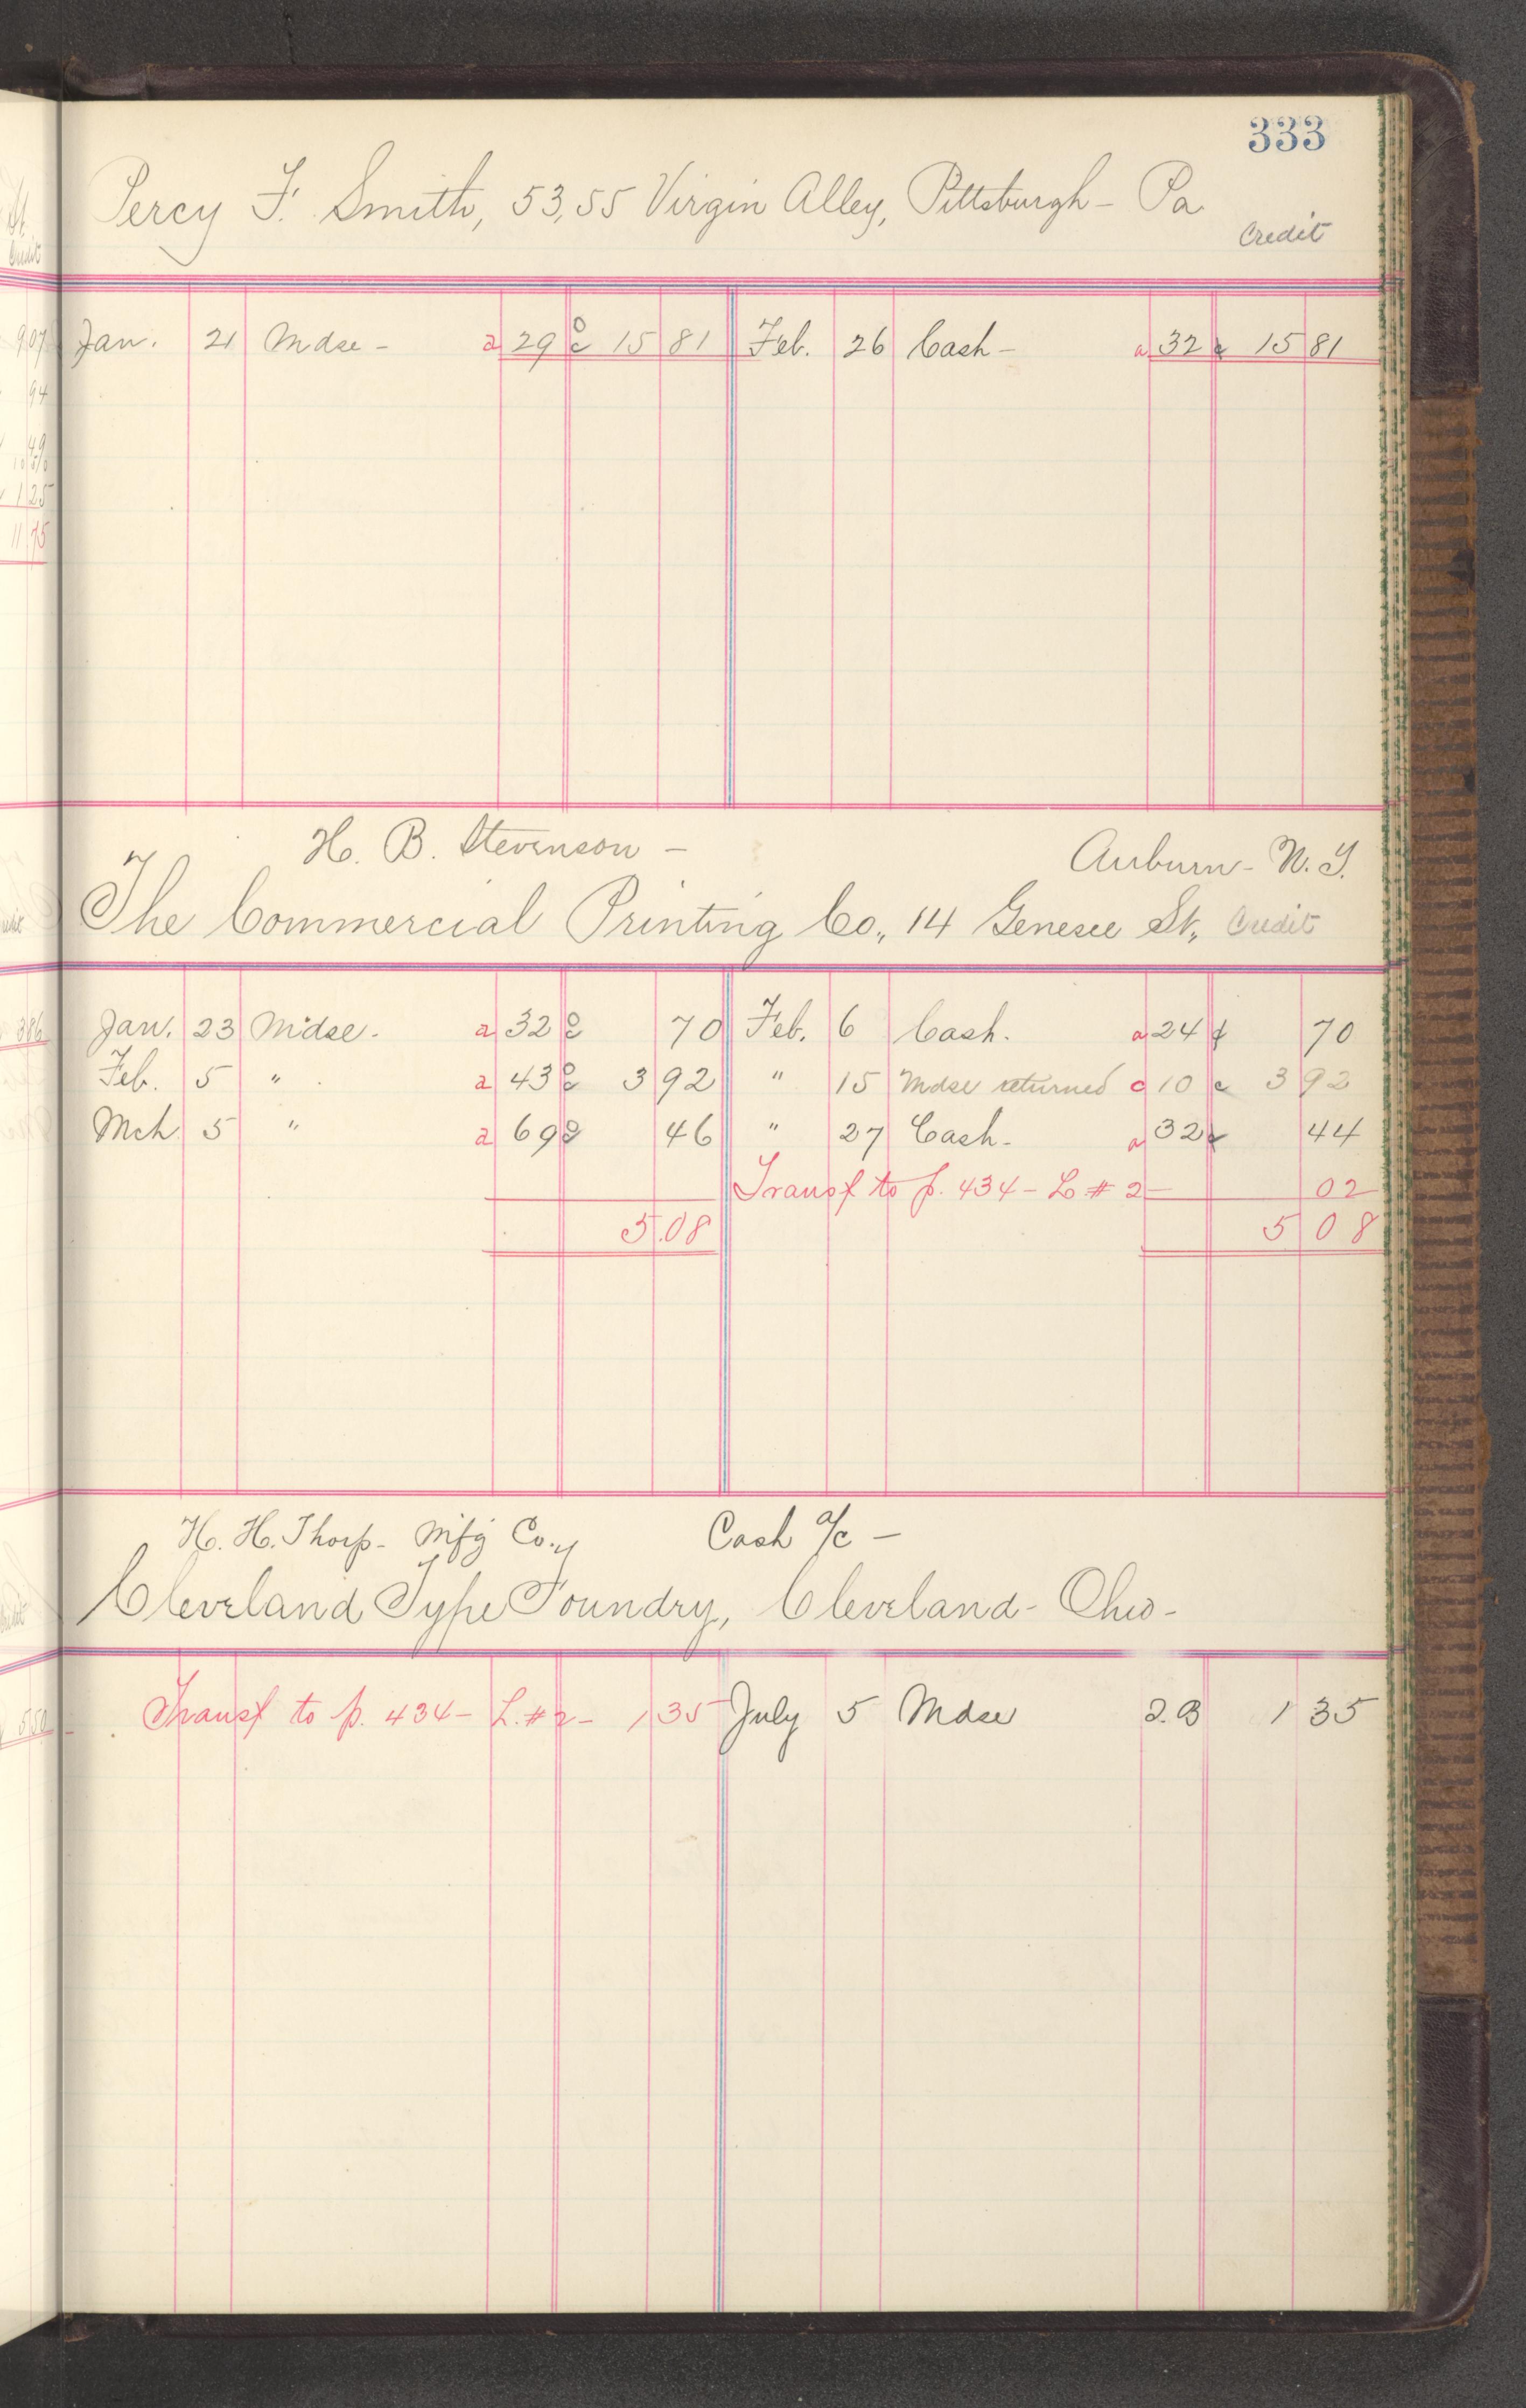 333
Percy F. Smith, 53,55 Virgin Alley, Pittsburgh - Pa
Credit
Jan. 21 Mdse - a 29 c 15 81 Feb. 26 Cash - a 32 c 15 81
H. B. Stevenson - Auburn - N. Y.
The Commercial Printing Co., 14 Genesee St., Credit
Jan. 23 Mdse. a 32 c 70 Feb. 6 Cash. a 24 c 70
Feb. 5 " a 43 c 3 92 " 15 Mdse returned c 10 c 3 92
Mch 5 " a 69 c 46 " 27 Cash - a 32 c 44
Transf to p. 434 - L. # 2 - 02
5.08 5 08
H. H. Thorp - Mfg Co.y Cash a/c -
Cleveland Type Foundry, Cleveland - Ohio -
Transf to p. 434 - L. # 2 - 1 35 July 5 Mdse 2.B 1 35